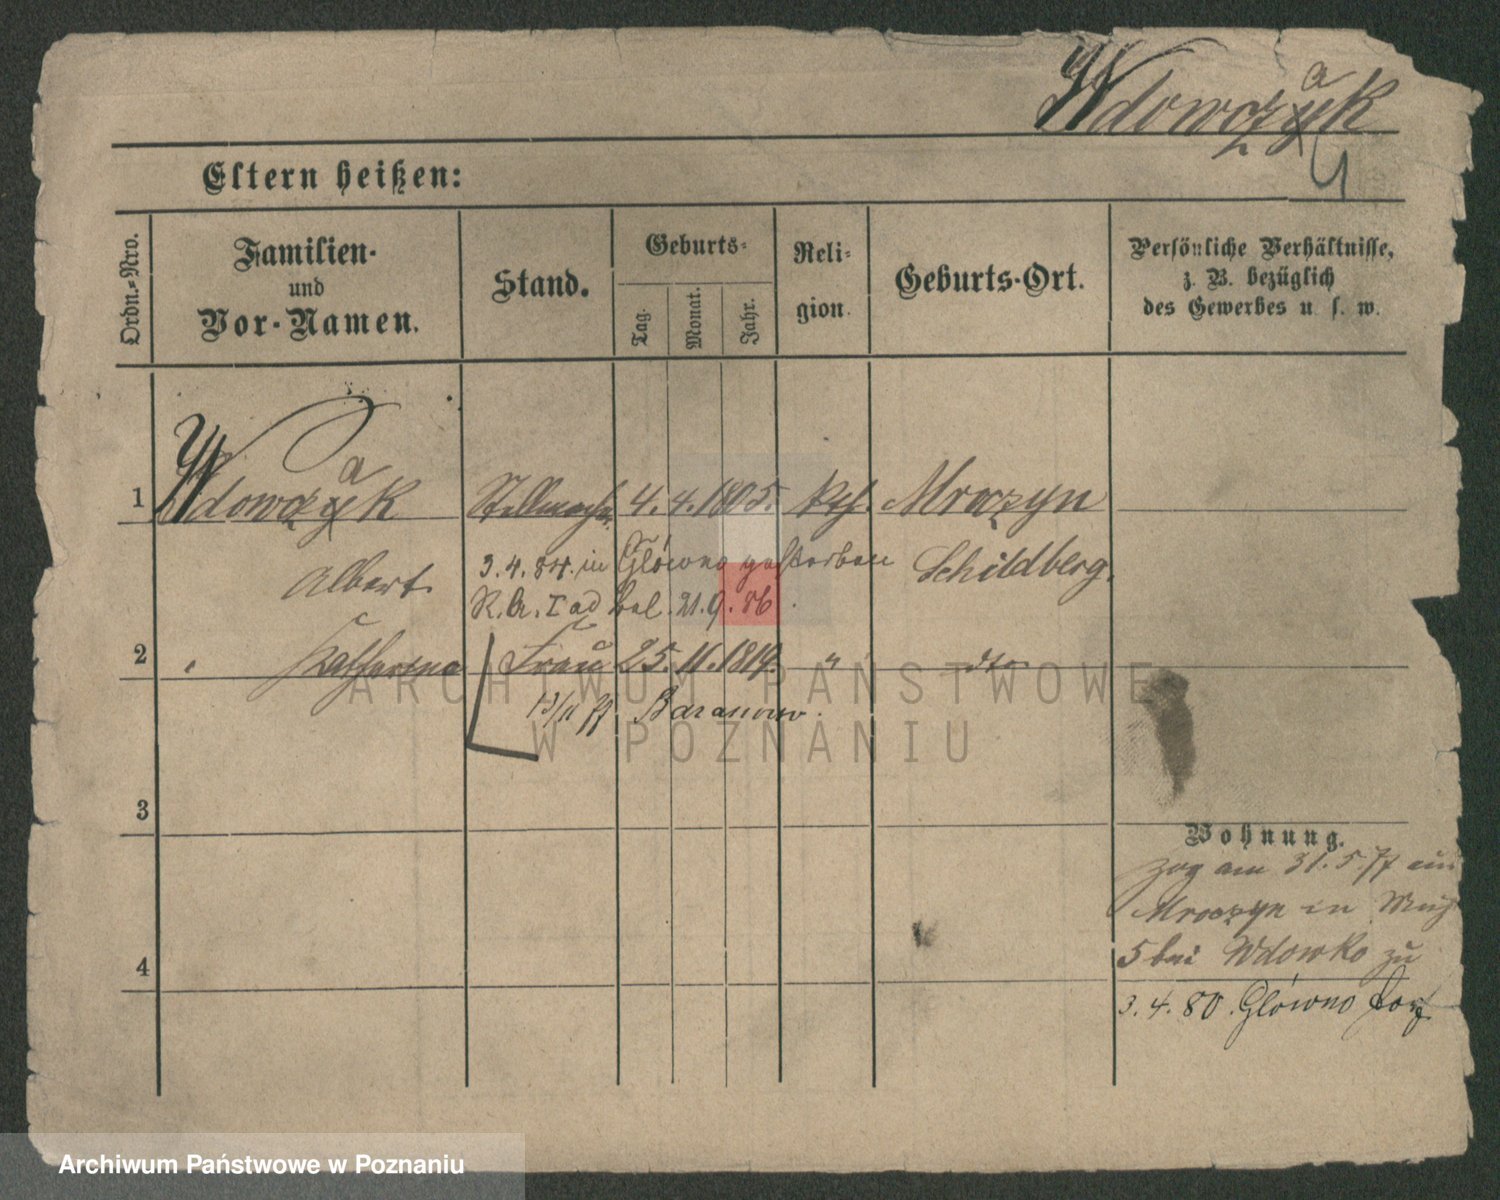 Wdowczak
4
Eltern heißen:
Ordn.-Nro.
Familien-
und
Vor-Namen.
Stand.
Geburts-
Tag.
Monat.
Jahr.
Reli-
gion.
Geburts-Ort.
Persönliche Verhältnisse,
z. B. bezüglich
des Gewerbes u. s. w.
1 Wdowczak Stellmacher 4. 4. 1805. kth. Mroczyn
Albert 3. 4. 84. in Główno gestorben Schildberg.
R. A. I ad bal. 21. 9. 86.
2 " Katharina Frau 25. 11. 1819. " dto
13/11 77 Baranowo.
3
Wohnung.
zog am 31. 5. 77 aus
Mroczyn in
5 bei Wdowko zu
4
3. 4. 80. Główno Dorf
ARCHIWUM PAŃSTWOWE
W POZNANIU
Archiwum Państwowe w Poznaniu